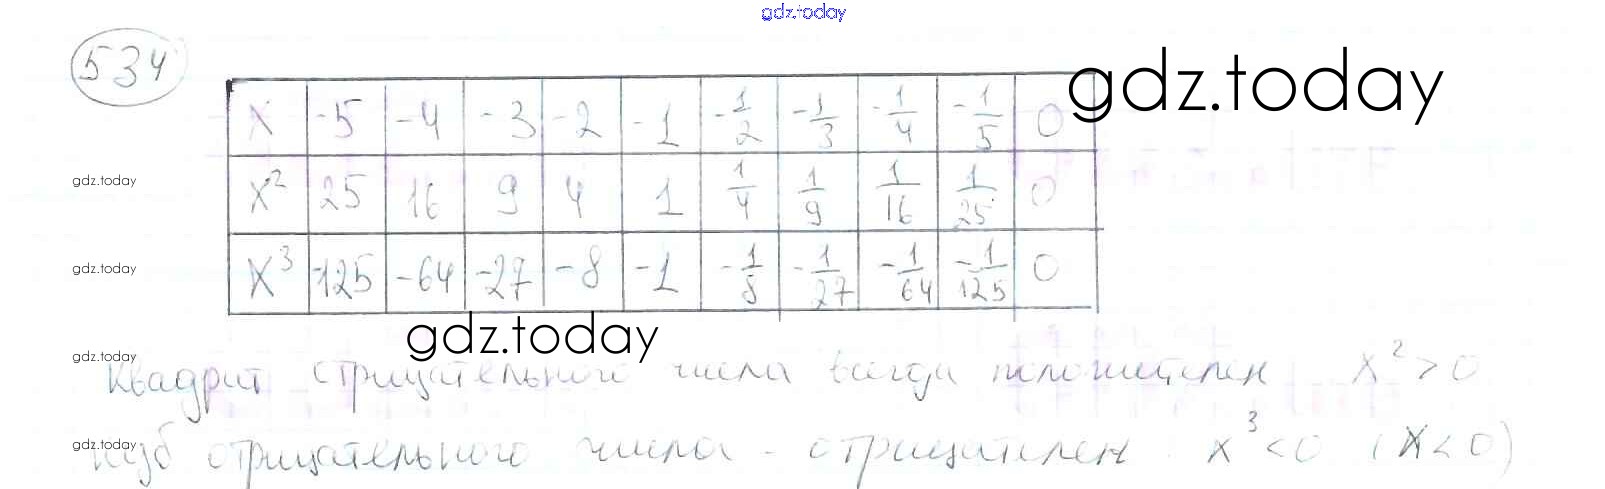 gdz.today
534
gdz.today
x -5 -4 -3 -2 -1 -1/2 -1/3 -1/4 -1/5 0
gdz.today
x² 25 16 9 4 1 1/4 1/9 1/16 1/25 0
gdz.today
x³ -125 -64 -27 -8 -1 -1/8 -1/27 -1/64 -1/125 0
gdz.today
gdz.today
Квадрат отрицательного числа всегда положителен x² > 0
gdz.today
Куб отрицательного числа - отрицателен. x³ < 0 (x < 0)